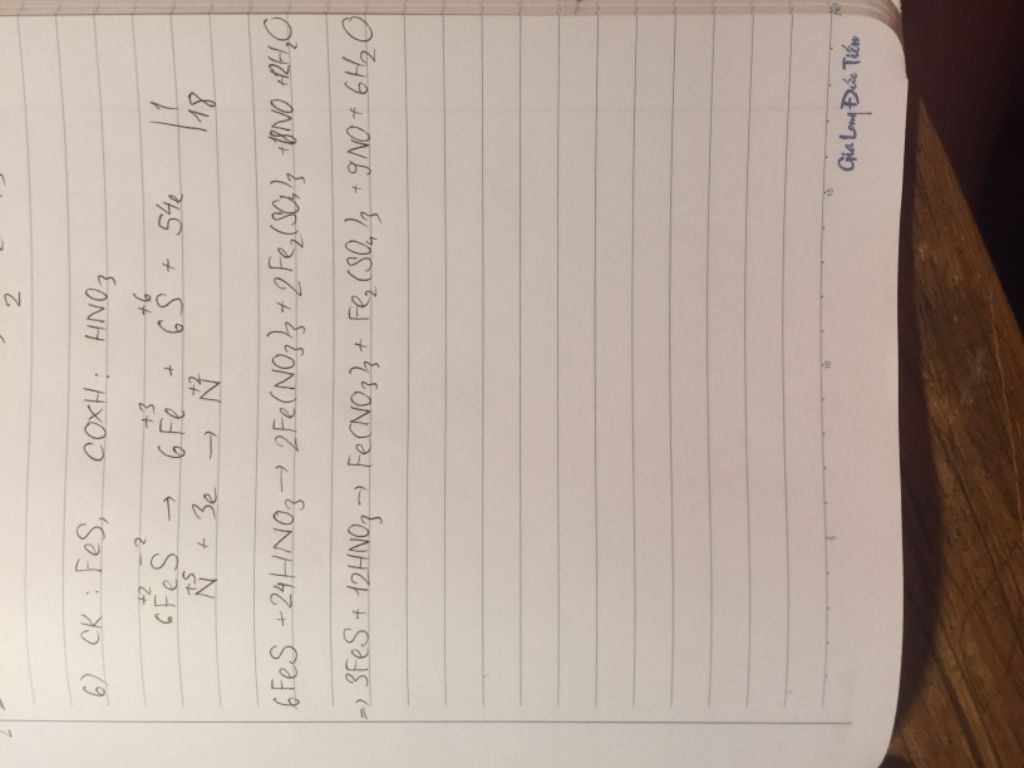 2
6) CK : FeS, COXH : HNO₃
6Fe⁺²S⁻² → 6Fe⁺³ + 6S⁺⁶ + 54e | 1
N⁺⁵ + 3e → N⁺² | 18
6FeS + 24HNO₃ → 2Fe(NO₃)₃ + 2Fe₂(SO₄)₃ + 18NO + 12H₂O
=) 3FeS + 12HNO₃ → Fe(NO₃)₃ + Fe₂(SO₄)₃ + 9NO + 6H₂O
5 10 15
Gia Long Đức Tiến